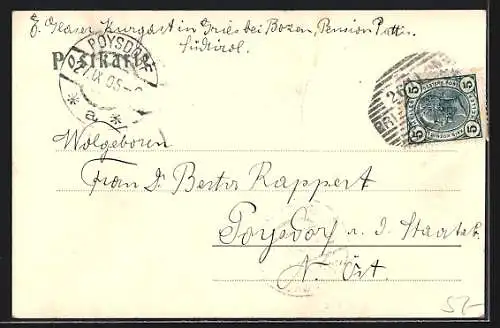 E. Glaser, Kurgast in Gries bei Bozen, Pension Patti.
Südtirol.
Postkarte
POYSDORF
* a *
26
5 5
Wolgeboren
Frau Dr Bertha Rappert
Poysdorf a. d. Staatsb.
N. Öst.
5,-